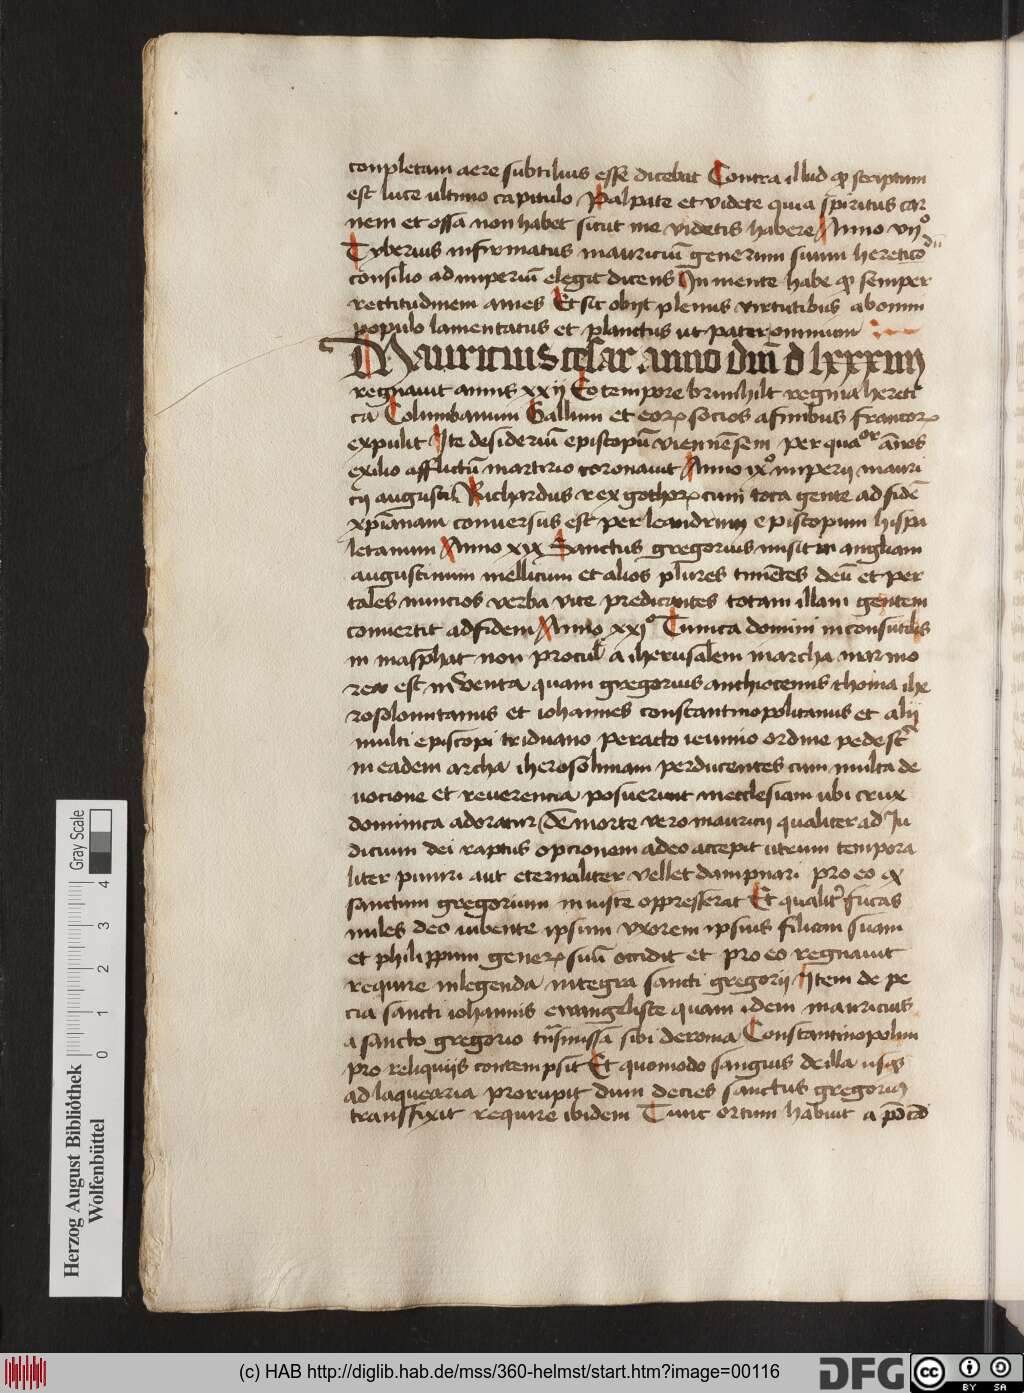 conpletam aere subtilius esse dicebat Contra illud qꝫ scriptum
est luce ultimo capitulo Palpate et videte quia spiritus car
nem et ossa non habet sicut me videtis habere Anno vijº
Tyberius infirmatus mauriciū generum suum heretico dū
consilio ad imperiū elegit dicens In mente habe qꝫ semper
rectitudinem ames Et sic obijt plenus virtutibus ab omni
populo lamentatus et planctus ut pater omnium
Mauricius cesar anno dm̄ d lxxxiiij
regnauit annis xxij Eo tempore brunhilt regina hereti
ca Columbanum Gallum et eorꝝ socios a finibus francorꝝ
expulit Ite desideriū episcopū viennēsem per quaᵒʳ ānos
exilio afflictū martirio coronauit Anno ixº imperij mauri
cij augusti Richardus rex gothorꝝ cum tota gente ad fidē
xp̄ianam conuersus est per leandrum episcopum hispa
letanum Anno xix Sanctus gregorius misit in angliam
augustinum mellitum et alios plures timētes deū et per
tales nuncios verba vite predicantes totam illam gentem
conuertit ad fidem Anno xxiº Tunica domini inconsutilis
in masphat non procul a iherusalem in archa marmo
rea est inventa quam gregorius anthiocenus thoma ihe
rosolomitanus et iohannes constantinopolitanus et alij
multi episcopi triduano peracto ieiunio ordine pedest̉
in eadem archa iherosolimam perducentes cum multa de
uocione et reuerencia posuerunt in ecclesiam ubi crux
dominica adoratur de morte vero mauricij qualiter ad Iu
dicium dei raptus opcionem a deo accepit utrum tempora
liter puniri aut eternaliter vellet dampnari pro eo qꝫ
sanctum gregorium iniuste oppresserat Et qualit̉ fucas
miles deo iubente ipsum vxorem ipsius filiam suam
et philippum generꝝ suū occidit et pro eo regnauit
require in legenda integra sancti gregorij Item de pe
cia sancti iohannis ewangeliste quam idem mauricius
a sancto gregorio tn̄smissa sibi de roma Constantinopolim
pro reliquijs contempsit Et quomodo sanguis de illa usqꝫ
ad laquearia prorupit dum decies sanctus gregoriꝰ
transfixit require ibidem Tunc ortum habuit a
Herzog August Bibliothek
Wolfenbüttel
Gray Scale
0 1 2 3 4
(c) HAB http://diglib.hab.de/mss/360-helmst/start.htm?image=00116
DFG
cc BY SA